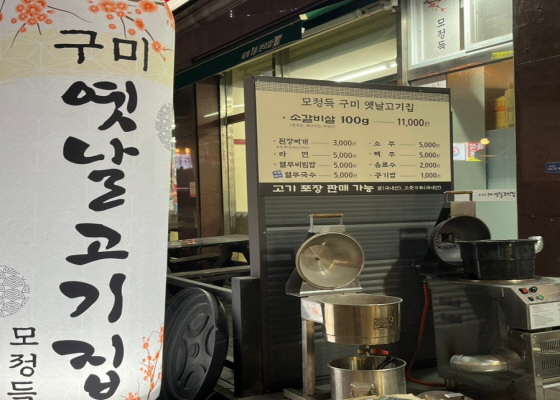 구미
옛날고기집
모정득
모정득
모정득 구미 옛날고기집
· 소갈비살 100g —— 11,000원
· 된장찌개 —— 3,000원
· 라 면 —— 5,000원
· 열무비빔밥 —— 5,000원
· 열무국수 —— 5,000원
· 소 주 —— 5,000원
· 맥 주 —— 5,000원
· 음료수 —— 2,000원
· 공기밥 —— 1,000원
고기 포장 판매 가능 쌀(국내산), 고춧가루(국내산)